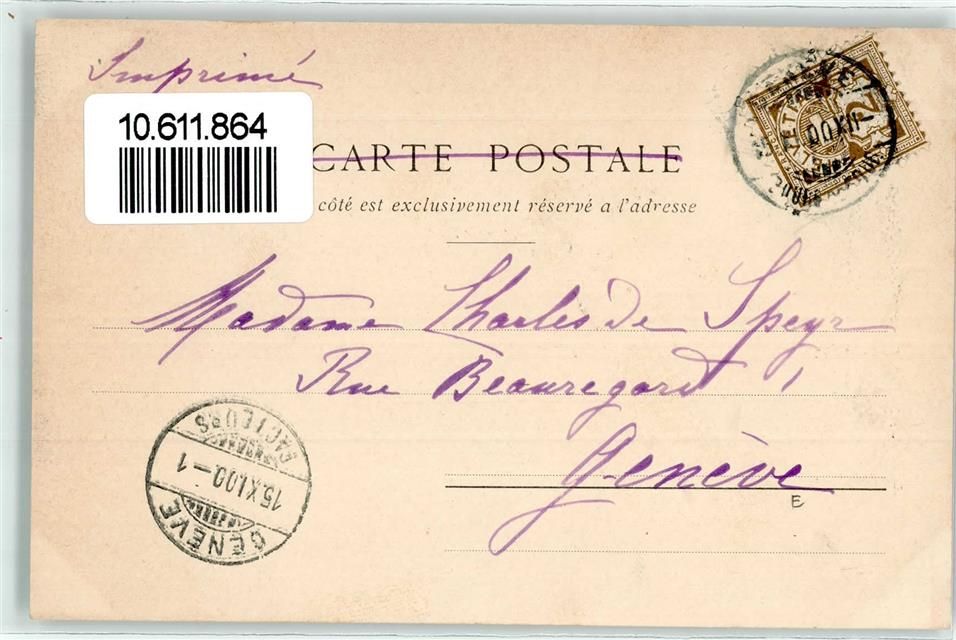 Imprimé
10.611.864
CARTE POSTALE
côté est exclusivement réservé a l'adresse
Madame Charles de Speyr
Rue Beauregard 1
Genève
E
FACTEURS
15.XI.00.-1
GENÈVE